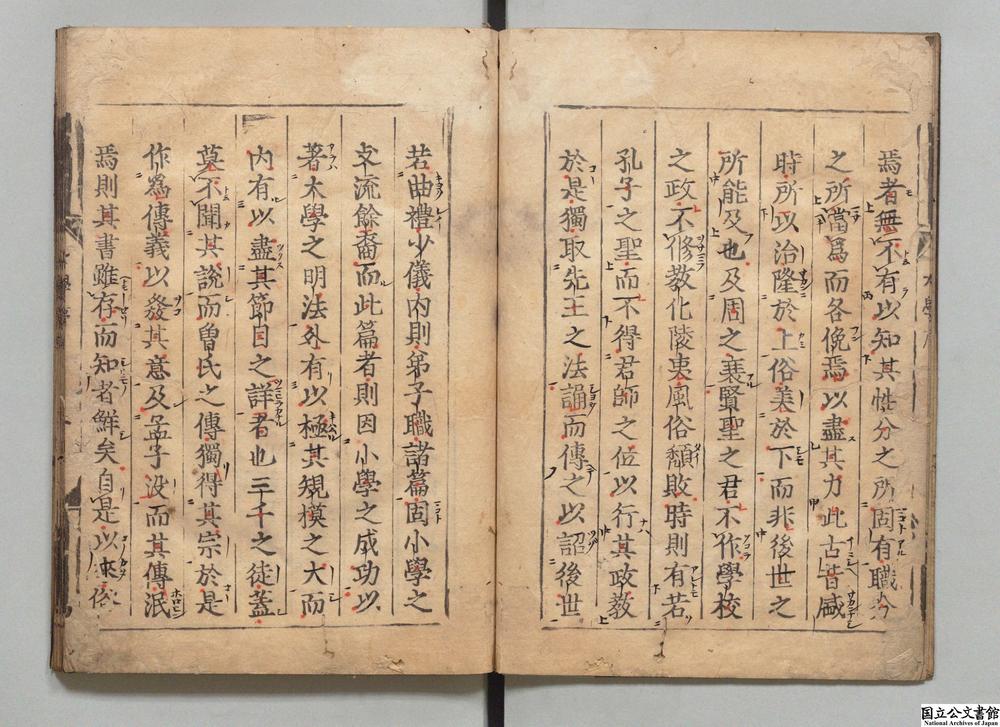 焉者無不有以知其性分之所固有職分
之所當爲而各俛焉以盡其力此古昔盛
時所以治隆於上俗美於下而非後世之
所能及也及周之衰賢聖之君不作學校
之政不修敎化陵夷風俗頹敗時則有若
孔子之聖而不得君師之位以行其政敎
於是獨取先王之法誦而傳之以詔後世
若曲禮少儀內則弟子職諸篇固小學之
支流餘裔而此篇者則因小學之成功以
著大學之明法外有以極其規模之大而
內有以盡其節目之詳者也三千之徒蓋
莫不聞其說而曾氏之傳獨得其宗於是
作爲傳義以發其意及孟子没而其傳泯
焉則其書雖存而知者鮮矣自是以來俗
国立公文書館
National Archives of Japan